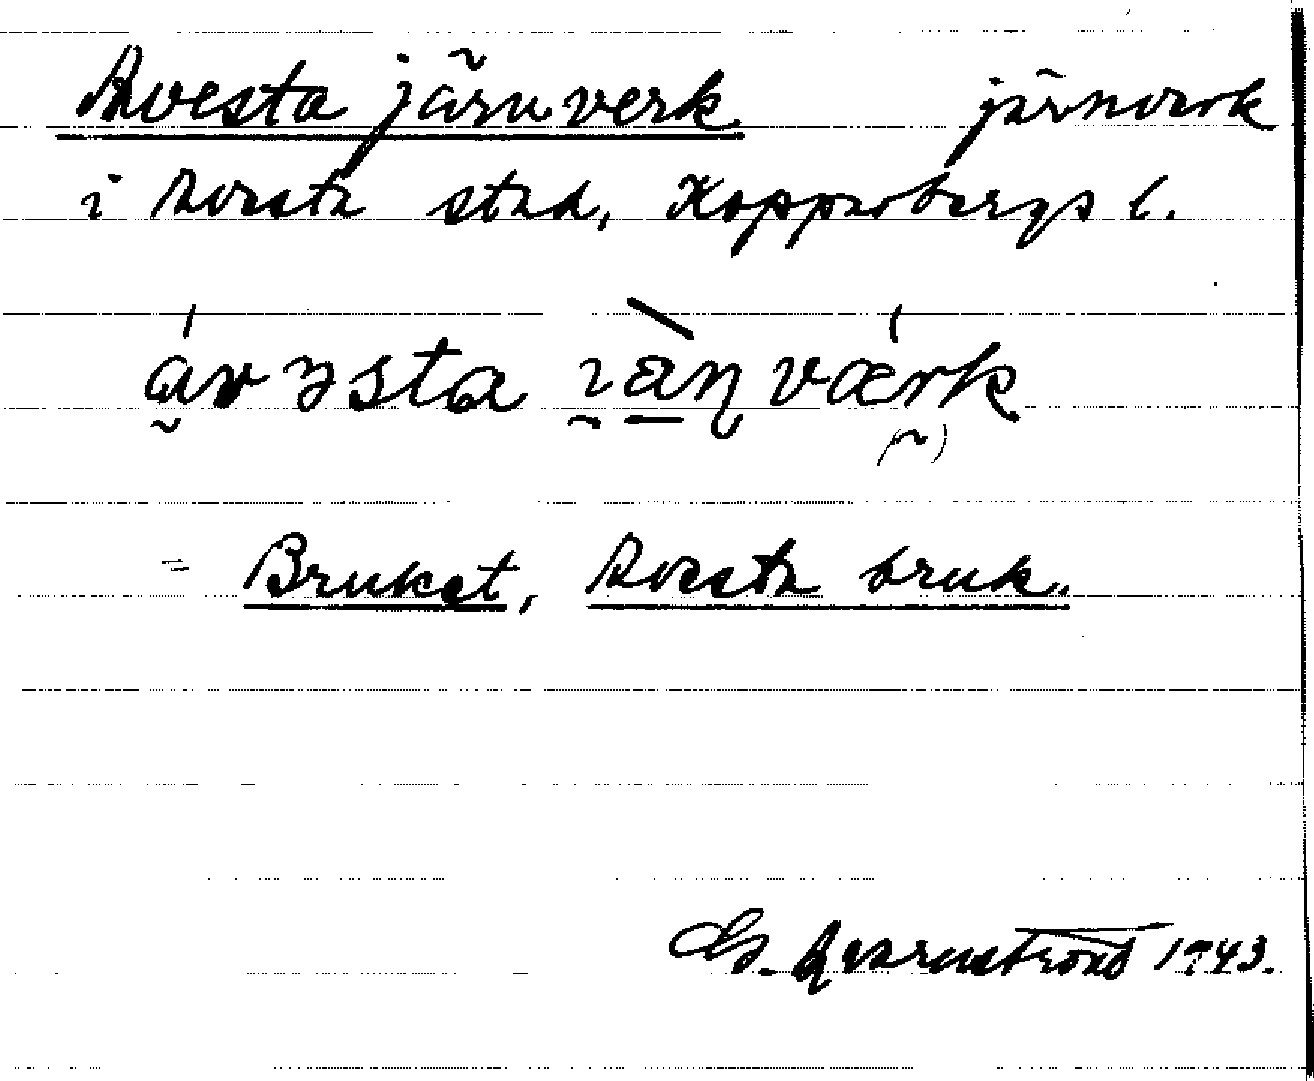 Avesta järnverk järnverk
i Avesta stad, Kopparbergs l.
ávəsta ɿàɳværk
= Bruket, Avesta bruk.
G. Qvarnström 1943.